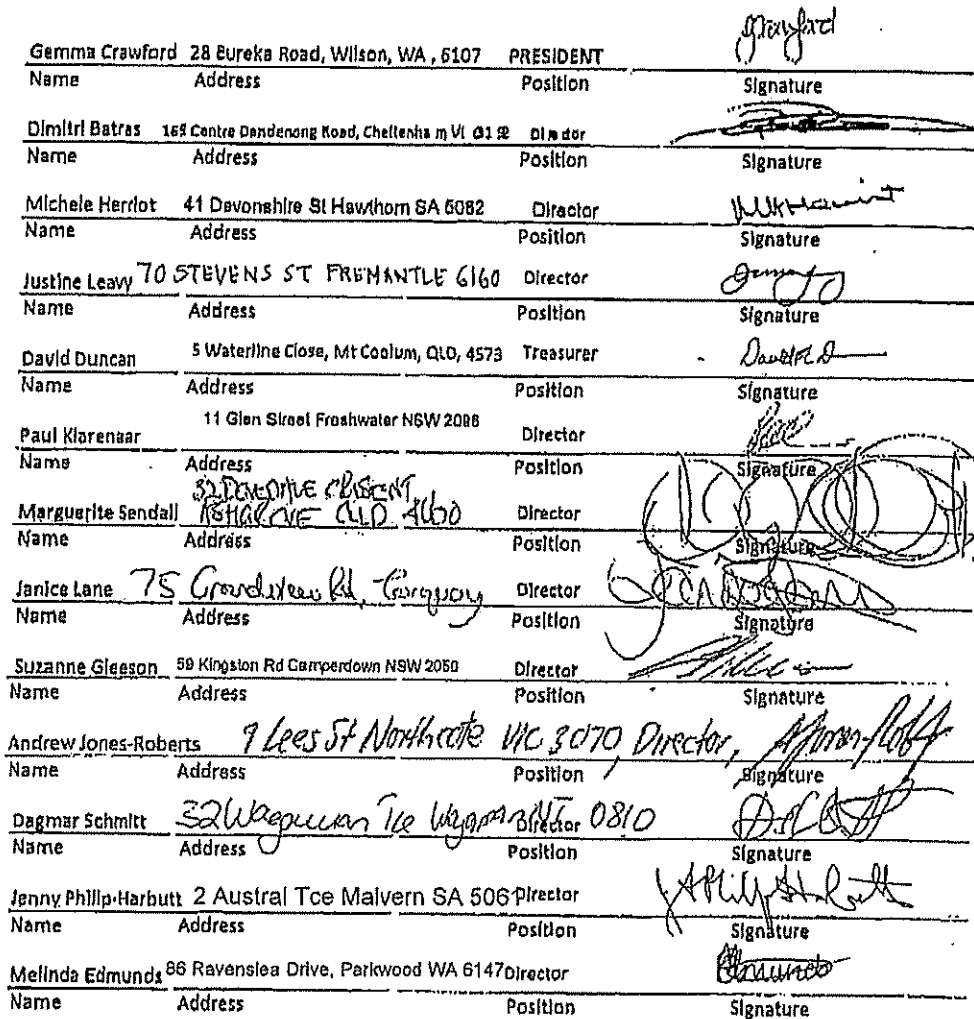 Gemma Crawford 28 Eureka Road, Wilson, WA , 6107 PRESIDENT
Name Address Position Signature
Dimitri Batras 169 Centre Dandenong Road, Cheltenham VI Director
Name Address Position Signature
Michele Herriot 41 Devonshire St Hawthorn SA 5062 Director
Name Address Position Signature
Justine Leavy 70 STEVENS ST FREMANTLE 6160 Director
Name Address Position Signature
David Duncan 5 Waterline Close, Mt Coolum, QLD, 4573 Treasurer
Name Address Position Signature
11 Glen Street Freshwater NSW 2096
Paul Klarenaar Director
Name Address Position Signature
32 CRESCENT
Marguerite Sendall ASHGROVE QLD 4060 Director
Name Address Position Signature
Janice Lane 75 Grandview Rd, Torquay Director
Name Address Position Signature
Suzanne Gleeson 59 Kingston Rd Camperdown NSW 2050 Director
Name Address Position Signature
Andrew Jones-Roberts 9 Lees St Northcote VIC 3070, Director,
Name Address Position Signature
Dagmar Schmitt 32 Wagaman Tce Wagaman NT Director 0810
Name Address Position Signature
Jenny Philip-Harbutt 2 Austral Tce Malvern SA 506 Director
Name Address Position Signature
Melinda Edmunds 86 Ravenslea Drive, Parkwood WA 6147 Director Edmunds
Name Address Position Signature